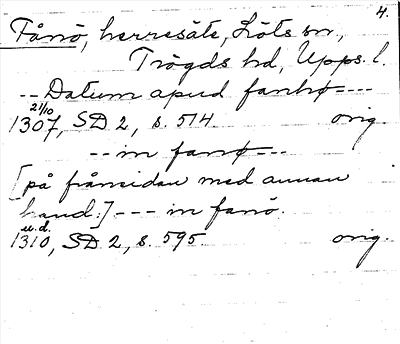 4.
Fånö, herresäte, Löts sn,
Trögds hd, Upps. l.
-- Datum apud fanhø ---
21/10
1307, SD 2, s. 514. orig.
-- in fanø --
[på frånsidan med annan
hand:] --- in fanö.
u.d.
1310, SD 2, s. 595. orig.